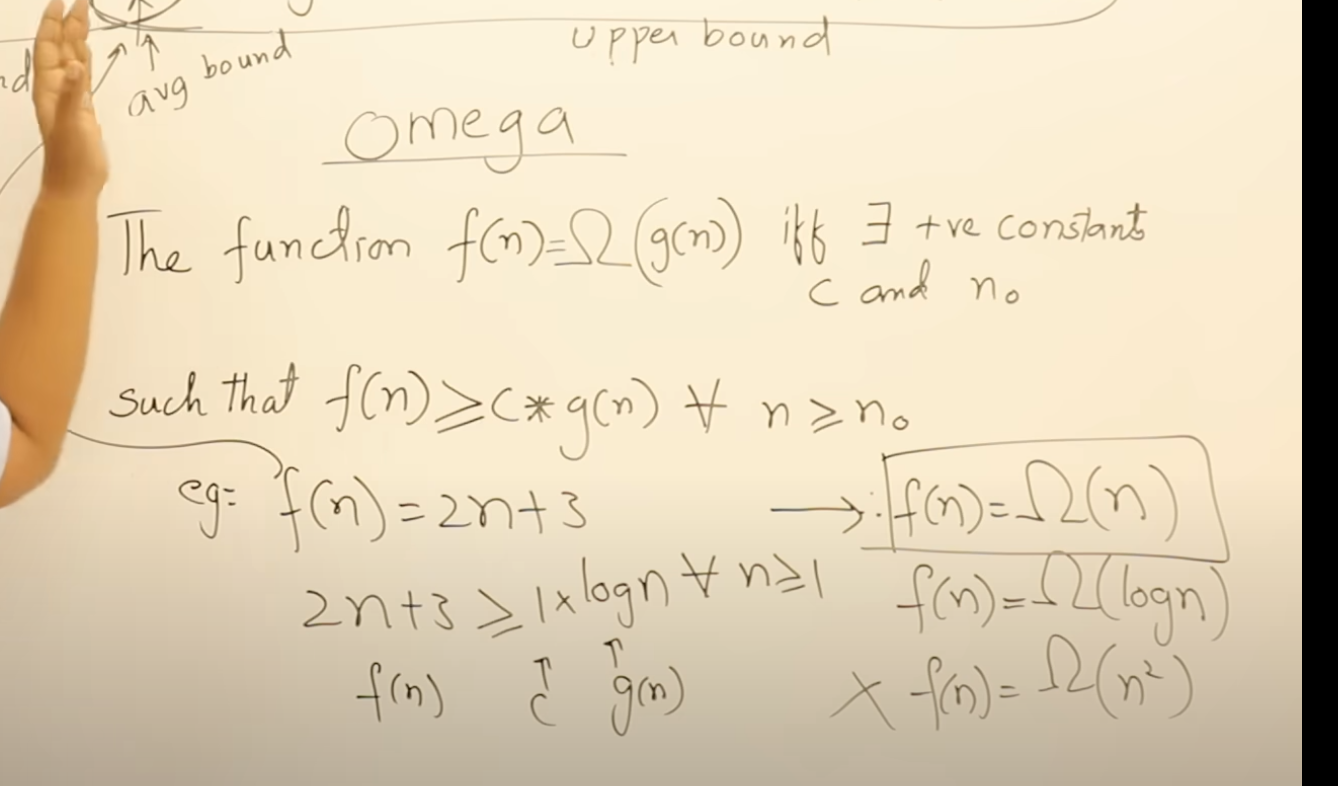 avg bound
upper bound
Omega
The function f(n)=Ω(g(n)) iff ∃ +ve constants
c and n₀
such that f(n)≥c*g(n) ∀ n≥n₀
eg= f(n)=2n+3
→ ∴ f(n)=Ω(n)
2n+3≥1×logn ∀ n≥1
f(n)=Ω(logn)
f(n) ↑c ↑g(n)
X f(n)=Ω(n²)